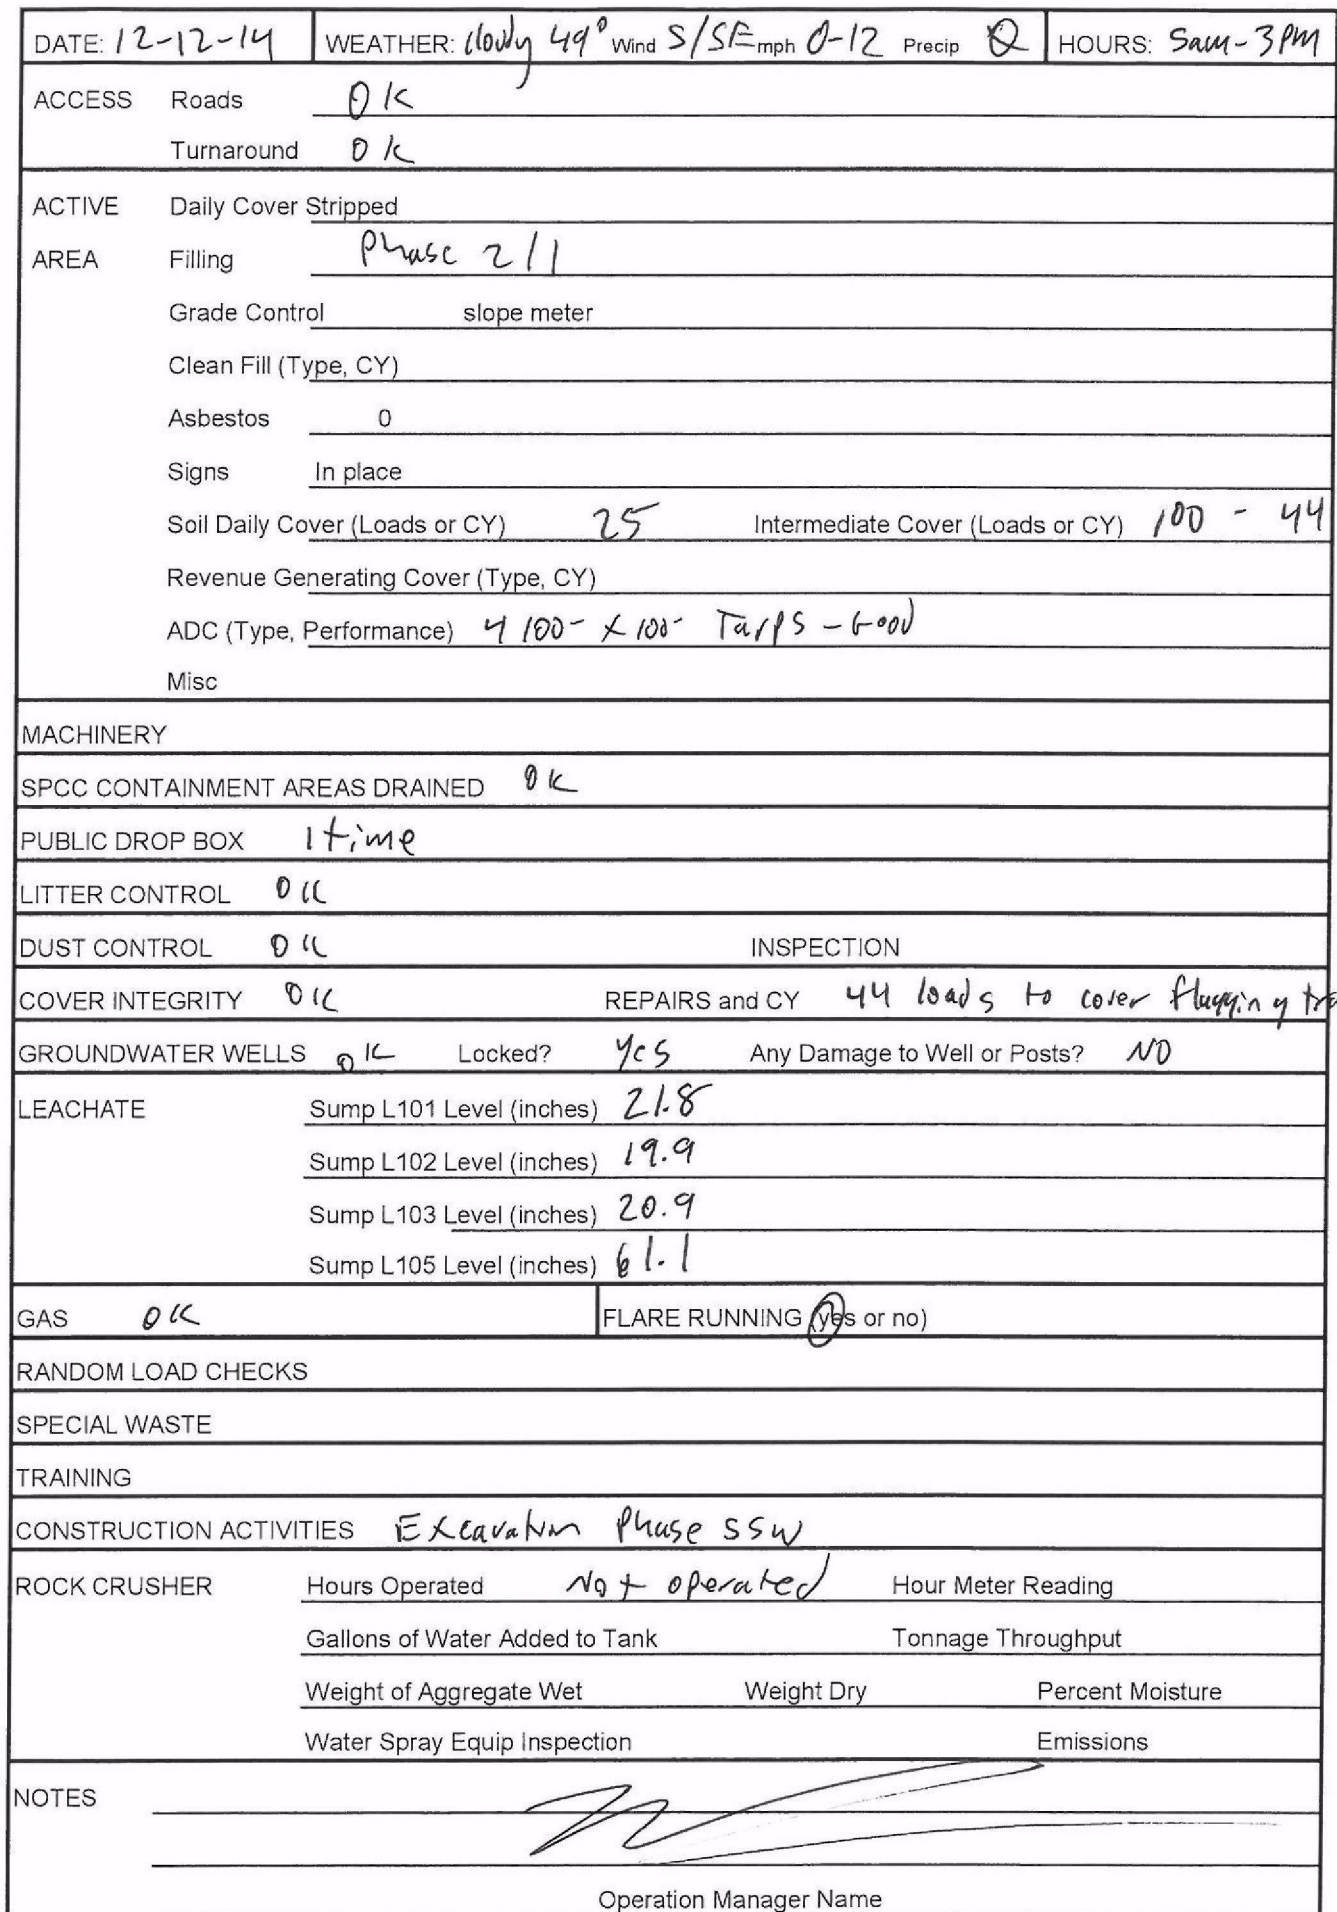 DATE: 12-12-14 WEATHER: Cloudy 49° Wind S/SE mph 0-12 Precip 0 HOURS: 5am-3PM
ACCESS Roads OK
Turnaround OK
ACTIVE Daily Cover Stripped
AREA Filling Phase 2/1
Grade Control slope meter
Clean Fill (Type, CY)
Asbestos 0
Signs In place
Soil Daily Cover (Loads or CY) 25 Intermediate Cover (Loads or CY) 100 - 44
Revenue Generating Cover (Type, CY)
ADC (Type, Performance) 4 100- X 100- Tarps - Good
Misc
MACHINERY
SPCC CONTAINMENT AREAS DRAINED OK
PUBLIC DROP BOX 1 time
LITTER CONTROL OK
DUST CONTROL OK INSPECTION
COVER INTEGRITY OK REPAIRS and CY 44 loads to cover flagging
GROUNDWATER WELLS OK Locked? Yes Any Damage to Well or Posts? NO
LEACHATE Sump L101 Level (inches) 21.8
Sump L102 Level (inches) 19.9
Sump L103 Level (inches) 20.9
Sump L105 Level (inches) 61.1
GAS OK FLARE RUNNING (yes or no)
RANDOM LOAD CHECKS
SPECIAL WASTE
TRAINING
CONSTRUCTION ACTIVITIES Excavation Phase SSW
ROCK CRUSHER Hours Operated Not operated Hour Meter Reading
Gallons of Water Added to Tank Tonnage Throughput
Weight of Aggregate Wet Weight Dry Percent Moisture
Water Spray Equip Inspection Emissions
NOTES
Operation Manager Name